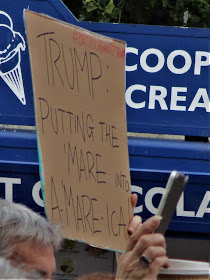 TRUMP:
PUTTING THE
'MARE INTO
A-MARE-ICA
COOP
CREA
COLA